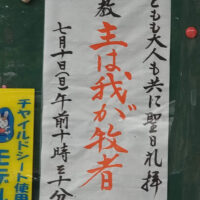 ども大人も共に聖日礼拝
教 主は我が牧者
七月十日(日)午前十時三十分
チャイルドシート使用